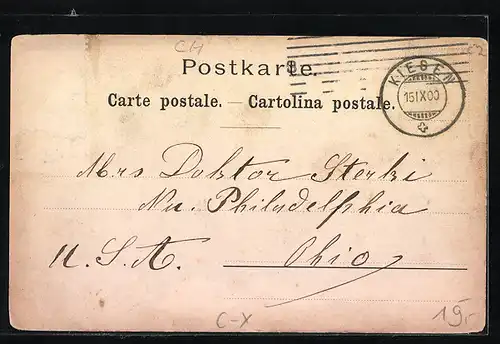 CH
Postkarte.
Carte postale. — Cartolina postale.
KIESEN
15 IX 00
Mrs Doktor Sterki
Nu. Philadelphia
U. S. A. Ohio
C-X
19,-